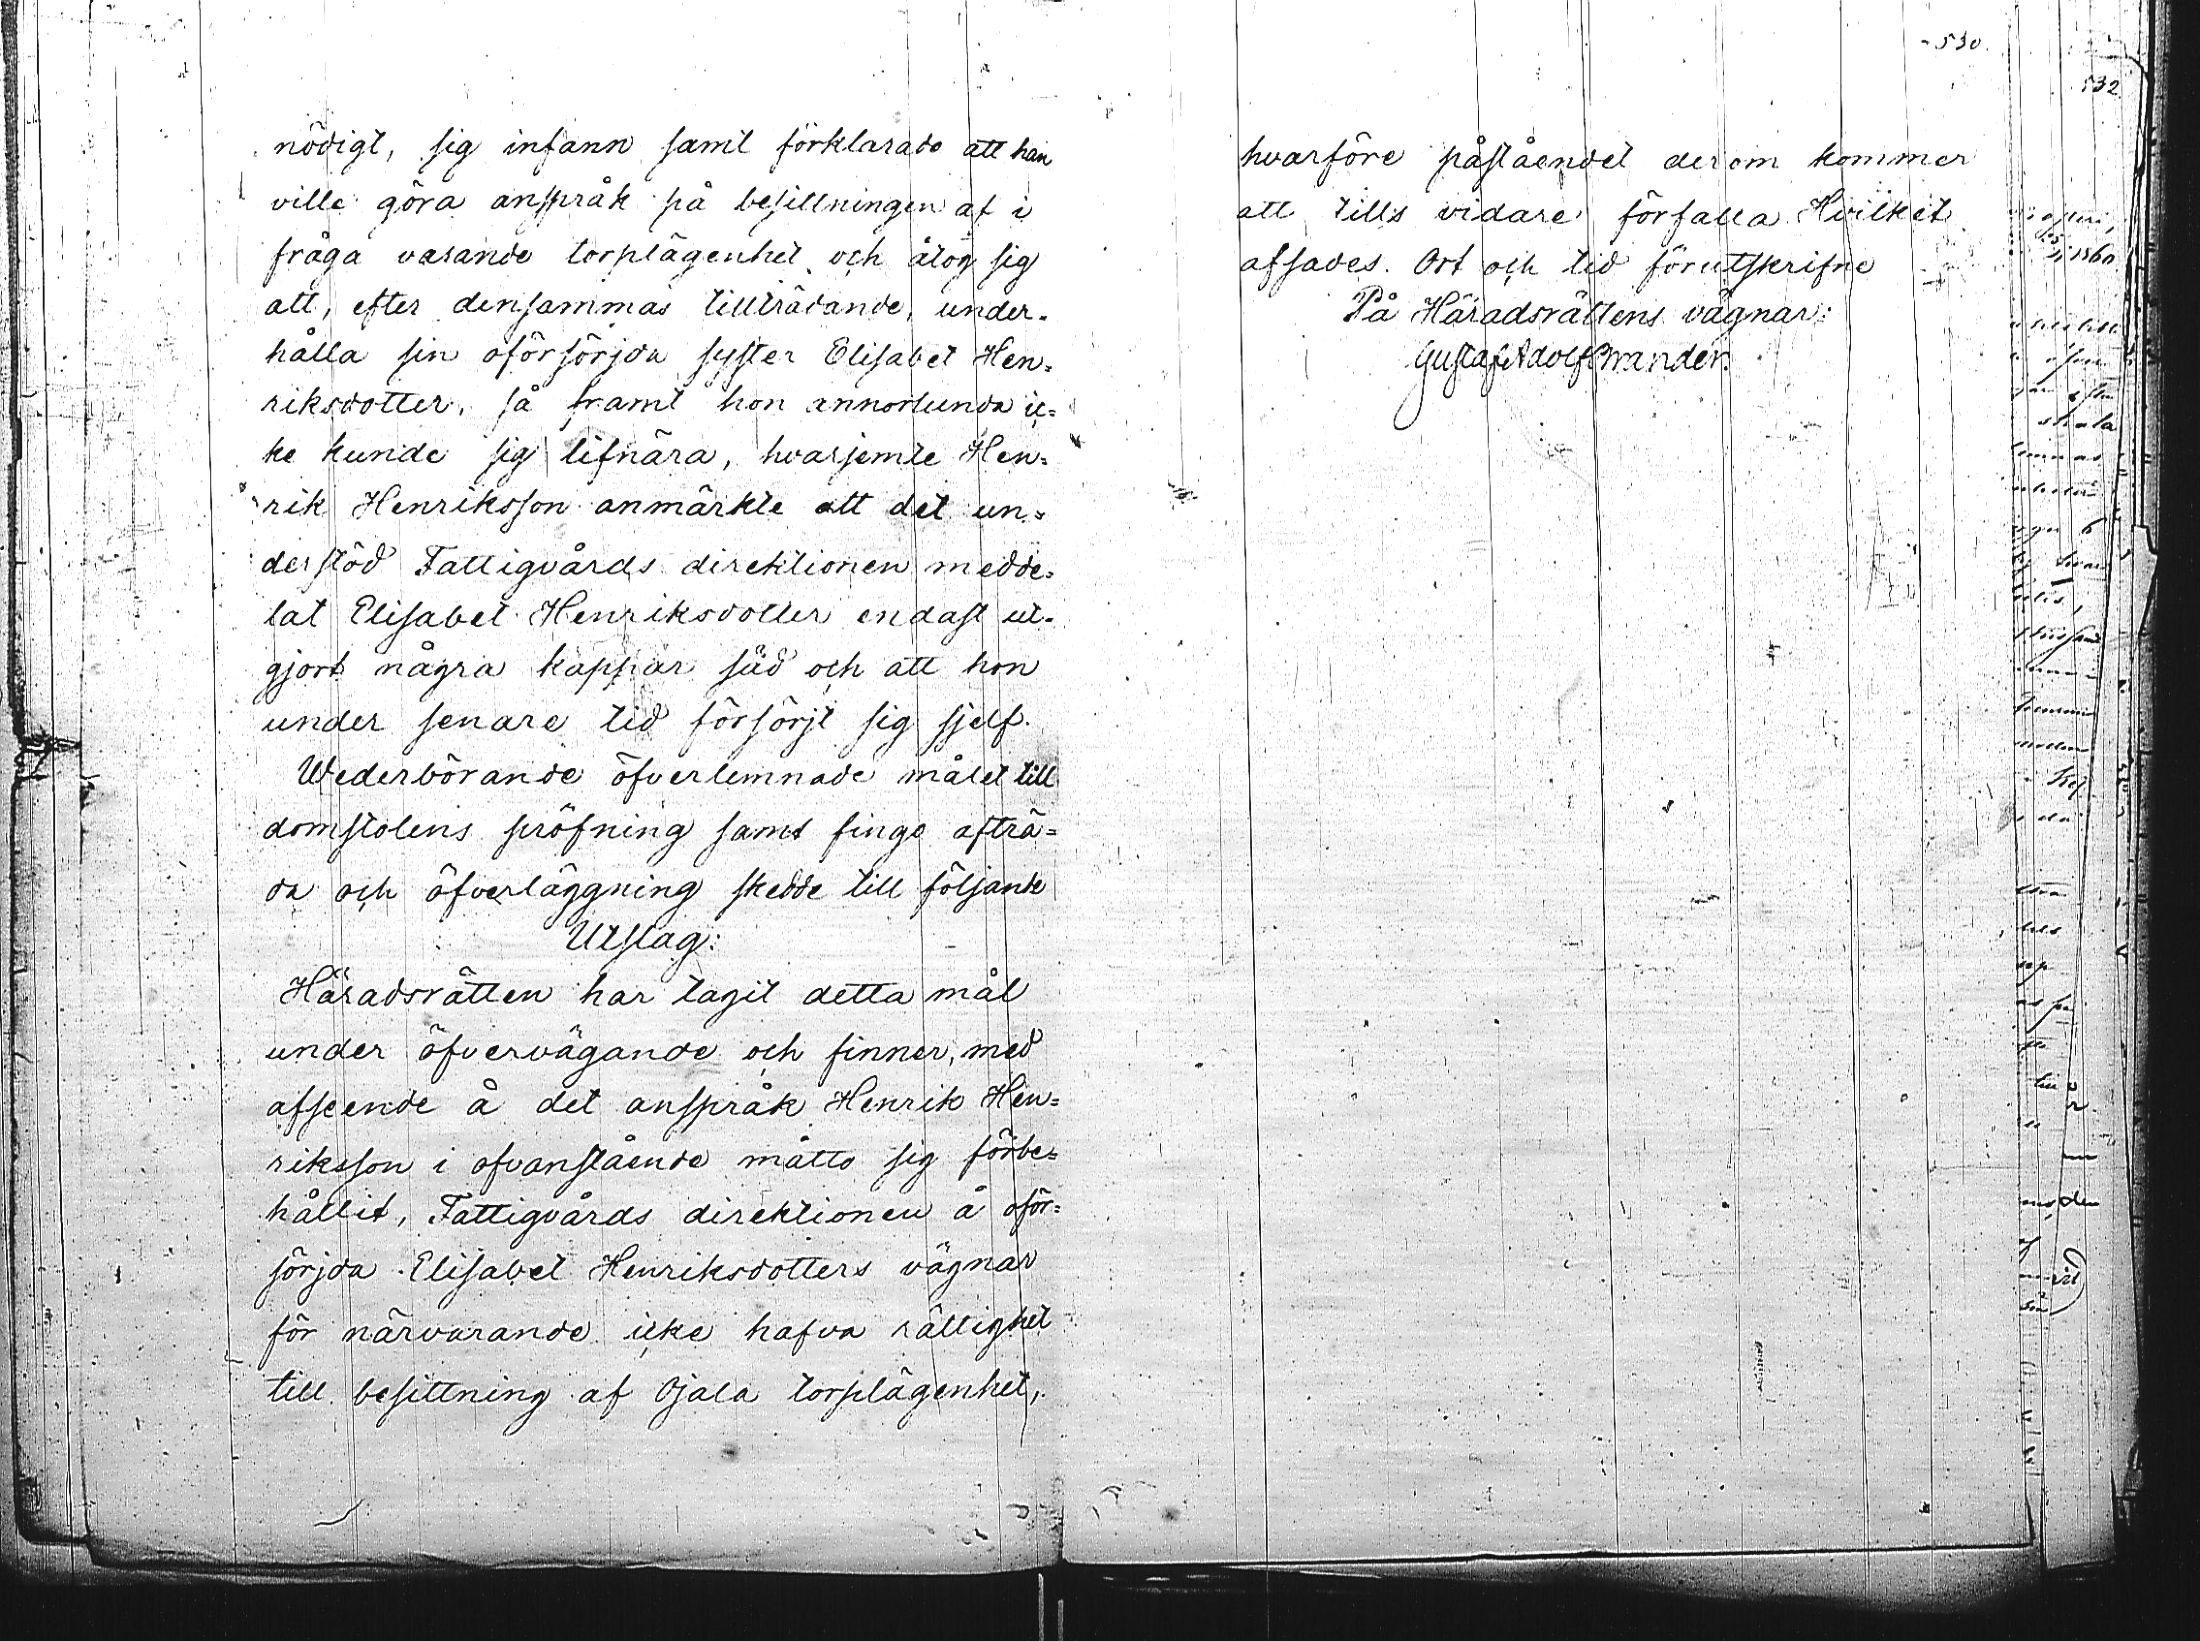 nödigt, sig infann samt förklarade att han
ville göra anspråk på besittningen af i
fråga varande torplägenhet och åtog sig
att, efter densammas tillträdande, under-
hålla sin oförsörjda syster Elisabet Hen-
riksdotter, så framt hon annorlunda ic-
ke kunde sig lifnära, hvarjemte Hen-
rik Henriksson anmärkte att det un-
derstöd Fattigvårds direktionen medde-
lat Elisabet Henriksdotter endast ut-
gjort några kappar säd och att hon
under senare tid försörjt sig sjelf.
Wederbörande öfverlemnade målet till
domstolens pröfning samt fingo afträ-
da och öfverläggning skedde till följande
Utslag:
Häradsrätten har tagit detta mål
under öfvervägande och finner, med
afseende å det anspråk Henrik Hen-
riksson i ofvanstående måtto sig förbe-
hållit, Fattigvårds direktionen å oför-
sörjda Elisabet Henriksdotters vägnar
för närvarande icke hafva rättighet
till besittning af Ojala torplägenhet,
530
hvarföre påståendet derom kommer
att tills vidare förfalla. Hvilket
afsades. Ort och tid förutskrifne
På Häradsrättens vägnar:
Gustaf Adolf Wrander.
532